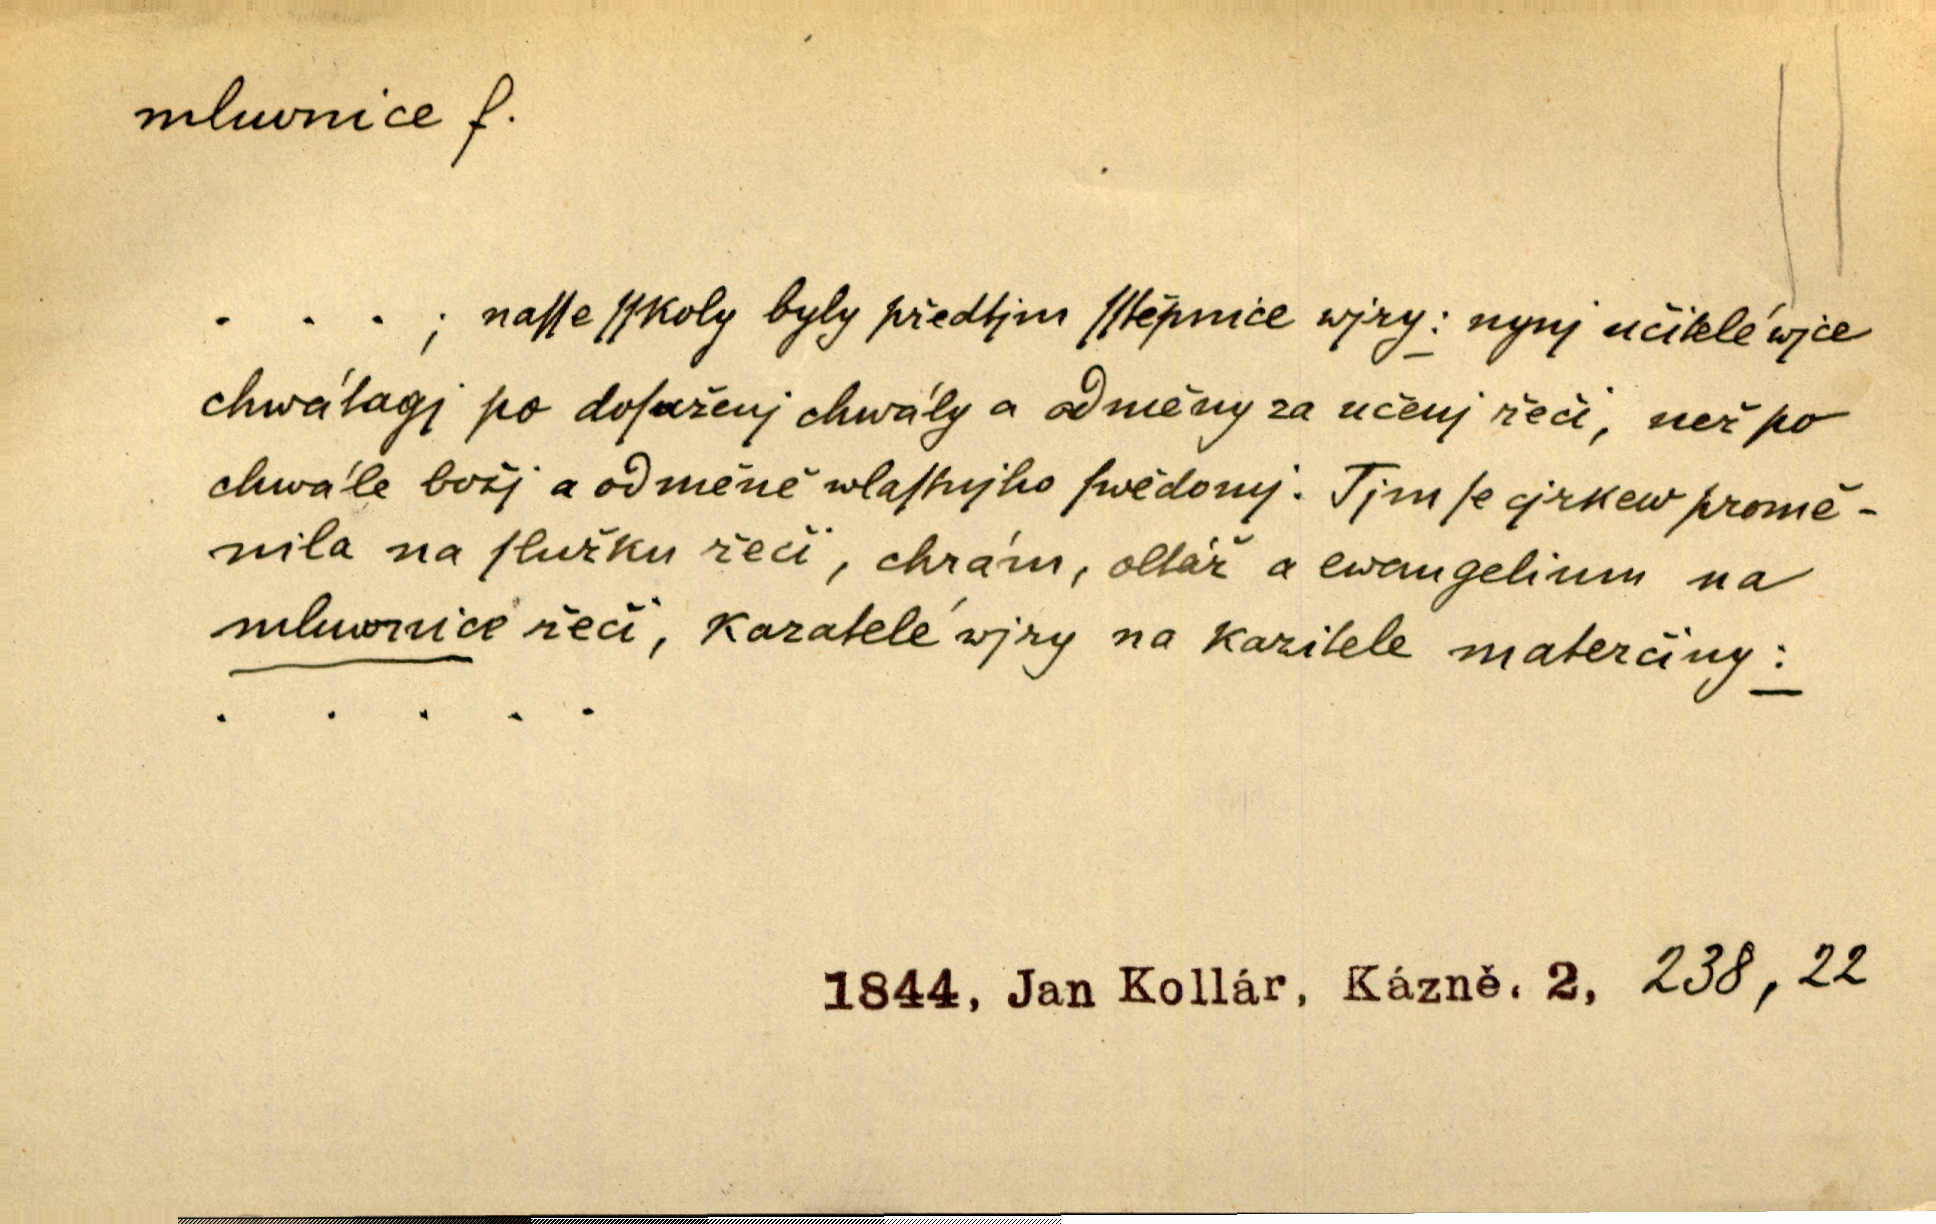 mluwnice f.
. . . ; naſſe ſſkoly byly předtjm ſſtěpnice wjry: nynj učitelé wjce
chwátagj po doſaženj chwály a odměny za učenj řeči, než po
chwále božj a odměně wlaſtnjho ſwědomj. Tjm ſe cjrkew promě-
nila na ſlužku řeči, chrám, oltář a ewangelium na
mluwnice řeči, Kazatelé wjry na kazitele materčiny:
. . . . .
1844, Jan Kollár, Kázně. 2, 238, 22